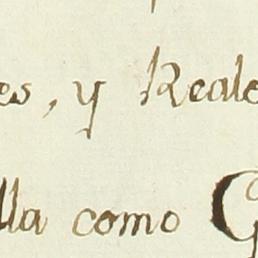 es, y Reale
lla como G